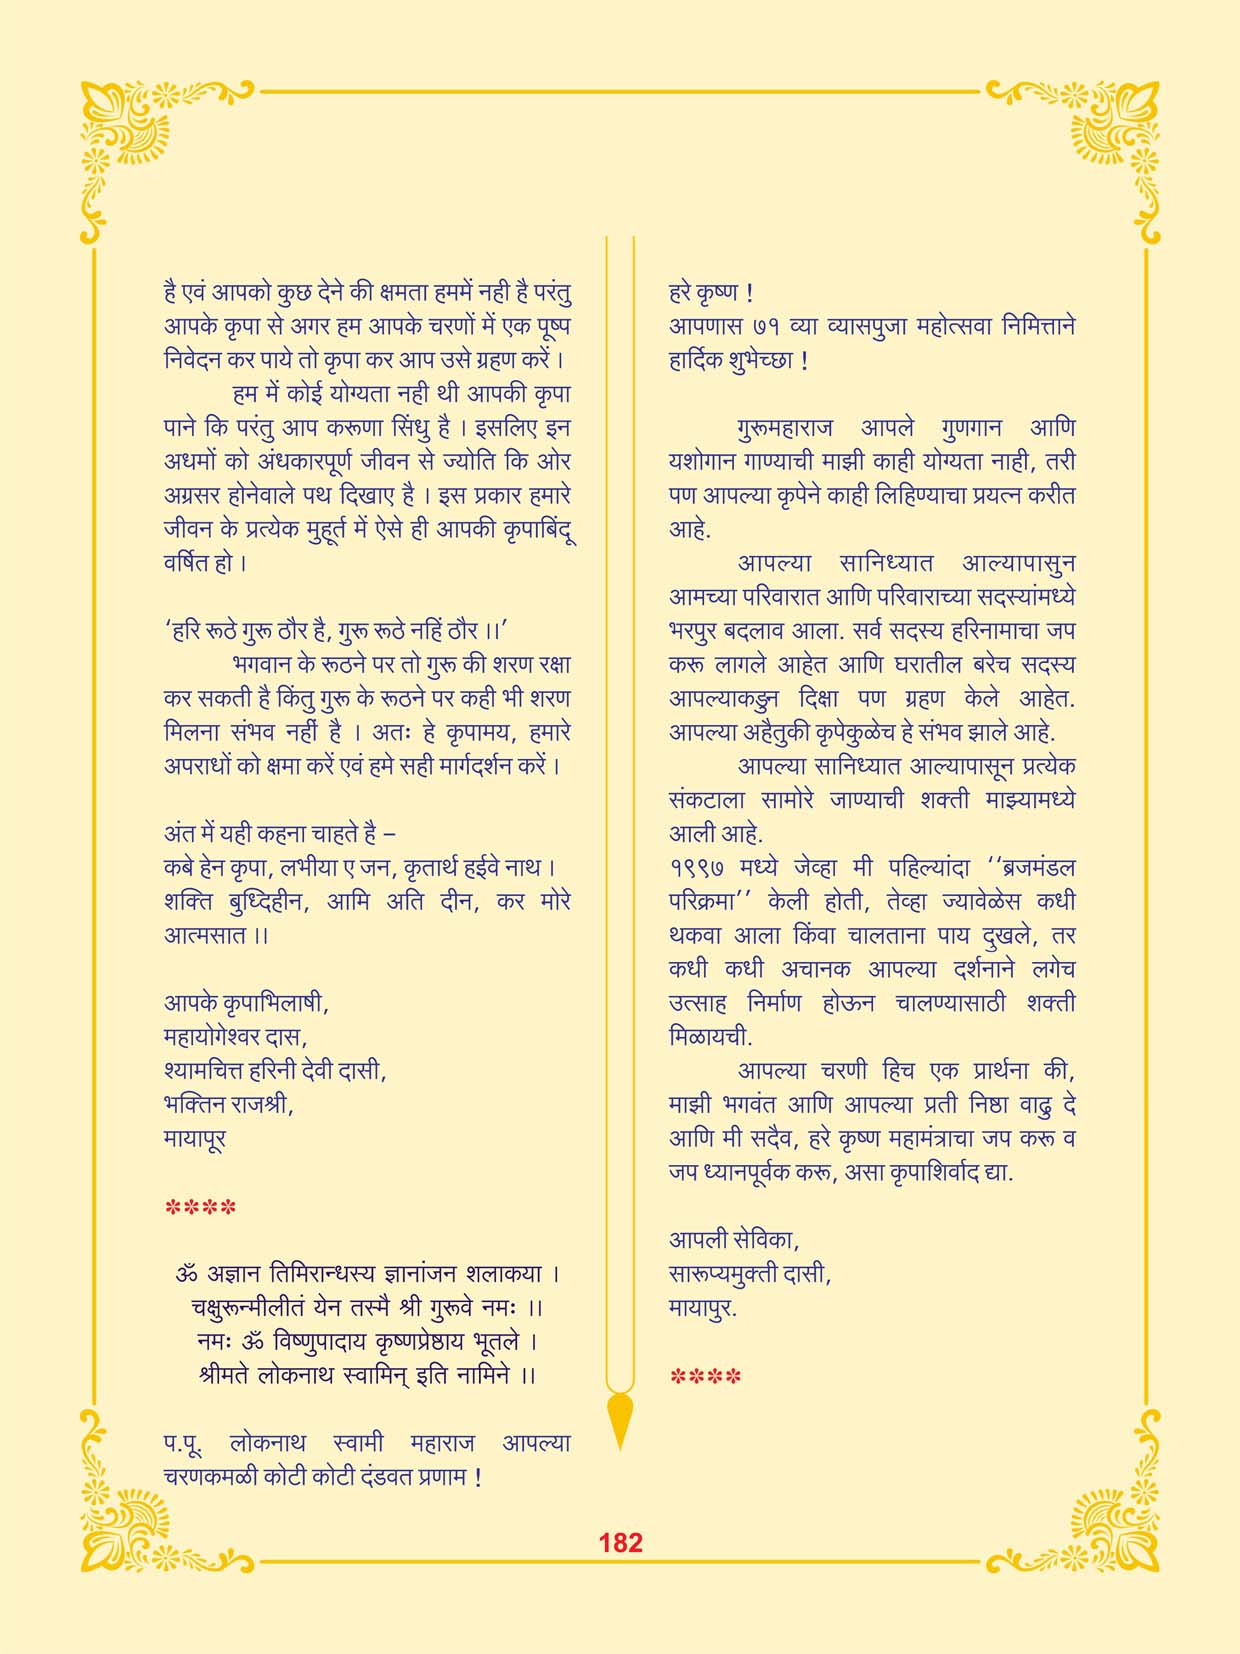 है एवं आपको कुछ देने की क्षमता हममें नही है परंतु
आपके कृपा से अगर हम आपके चरणों में एक पूष्प
निवेदन कर पाये तो कृपा कर आप उसे ग्रहण करें ।
हम में कोई योग्यता नही थी आपकी कृपा
पाने कि परंतु आप करूणा सिंधु है । इसलिए इन
अधमों को अंधकारपूर्ण जीवन से ज्योति कि ओर
अग्रसर होनेवाले पथ दिखाए है । इस प्रकार हमारे
जीवन के प्रत्येक मुहूर्त में ऐसे ही आपकी कृपाबिंदू
वर्षित हो ।
‘हरि रूठे गुरू ठौर है, गुरू रूठे नहिं ठौर ।।’
भगवान के रूठने पर तो गुरू की शरण रक्षा
कर सकती है किंतु गुरू के रूठने पर कही भी शरण
मिलना संभव नहीं है । अतः हे कृपामय, हमारे
अपराधों को क्षमा करें एवं हमे सही मार्गदर्शन करें ।
अंत में यही कहना चाहते है –
कबे हेन कृपा, लभीया ए जन, कृतार्थ हईवे नाथ ।
शक्ति बुध्दिहीन, आमि अति दीन, कर मोरे
आत्मसात ।।
आपके कृपाभिलाषी,
महायोगेश्वर दास,
श्यामचित्त हरिनी देवी दासी,
भक्तिन राजश्री,
मायापूर
****
ॐ अज्ञान तिमिरान्धस्य ज्ञानांजन शलाकया ।
चक्षुरून्मीलीतं येन तस्मै श्री गुरूवे नमः ।।
नमः ॐ विष्णुपादाय कृष्णप्रेष्ठाय भूतले ।
श्रीमते लोकनाथ स्वामिन् इति नामिने ।।
प.पू. लोकनाथ स्वामी महाराज आपल्या
चरणकमळी कोटी कोटी दंडवत प्रणाम !
हरे कृष्ण !
आपणास ७१ व्या व्यासपुजा महोत्सवा निमित्ताने
हार्दिक शुभेच्छा !
गुरूमहाराज आपले गुणगान आणि
यशोगान गाण्याची माझी काही योग्यता नाही, तरी
पण आपल्या कृपेने काही लिहिण्याचा प्रयत्न करीत
आहे.
आपल्या सानिध्यात आल्यापासुन
आमच्या परिवारात आणि परिवाराच्या सदस्यांमध्ये
भरपुर बदलाव आला. सर्व सदस्य हरिनामाचा जप
करू लागले आहेत आणि घरातील बरेच सदस्य
आपल्याकडुन दिक्षा पण ग्रहण केले आहेत.
आपल्या अहैतुकी कृपेकुळेच हे संभव झाले आहे.
आपल्या सानिध्यात आल्यापासून प्रत्येक
संकटाला सामोरे जाण्याची शक्ती माझ्यामध्ये
आली आहे.
१९९७ मध्ये जेव्हा मी पहिल्यांदा ‘‘ब्रजमंडल
परिक्रमा’’ केली होती, तेव्हा ज्यावेळेस कधी
थकवा आला किंवा चालताना पाय दुखले, तर
कधी कधी अचानक आपल्या दर्शनाने लगेच
उत्साह निर्माण होऊन चालण्यासाठी शक्ती
मिळायची.
आपल्या चरणी हिच एक प्रार्थना की,
माझी भगवंत आणि आपल्या प्रती निष्ठा वाढु दे
आणि मी सदैव, हरे कृष्ण महामंत्राचा जप करू व
जप ध्यानपूर्वक करू, असा कृपाशिर्वाद द्या.
आपली सेविका,
सारूप्यमुक्ती दासी,
मायापुर.
****
182